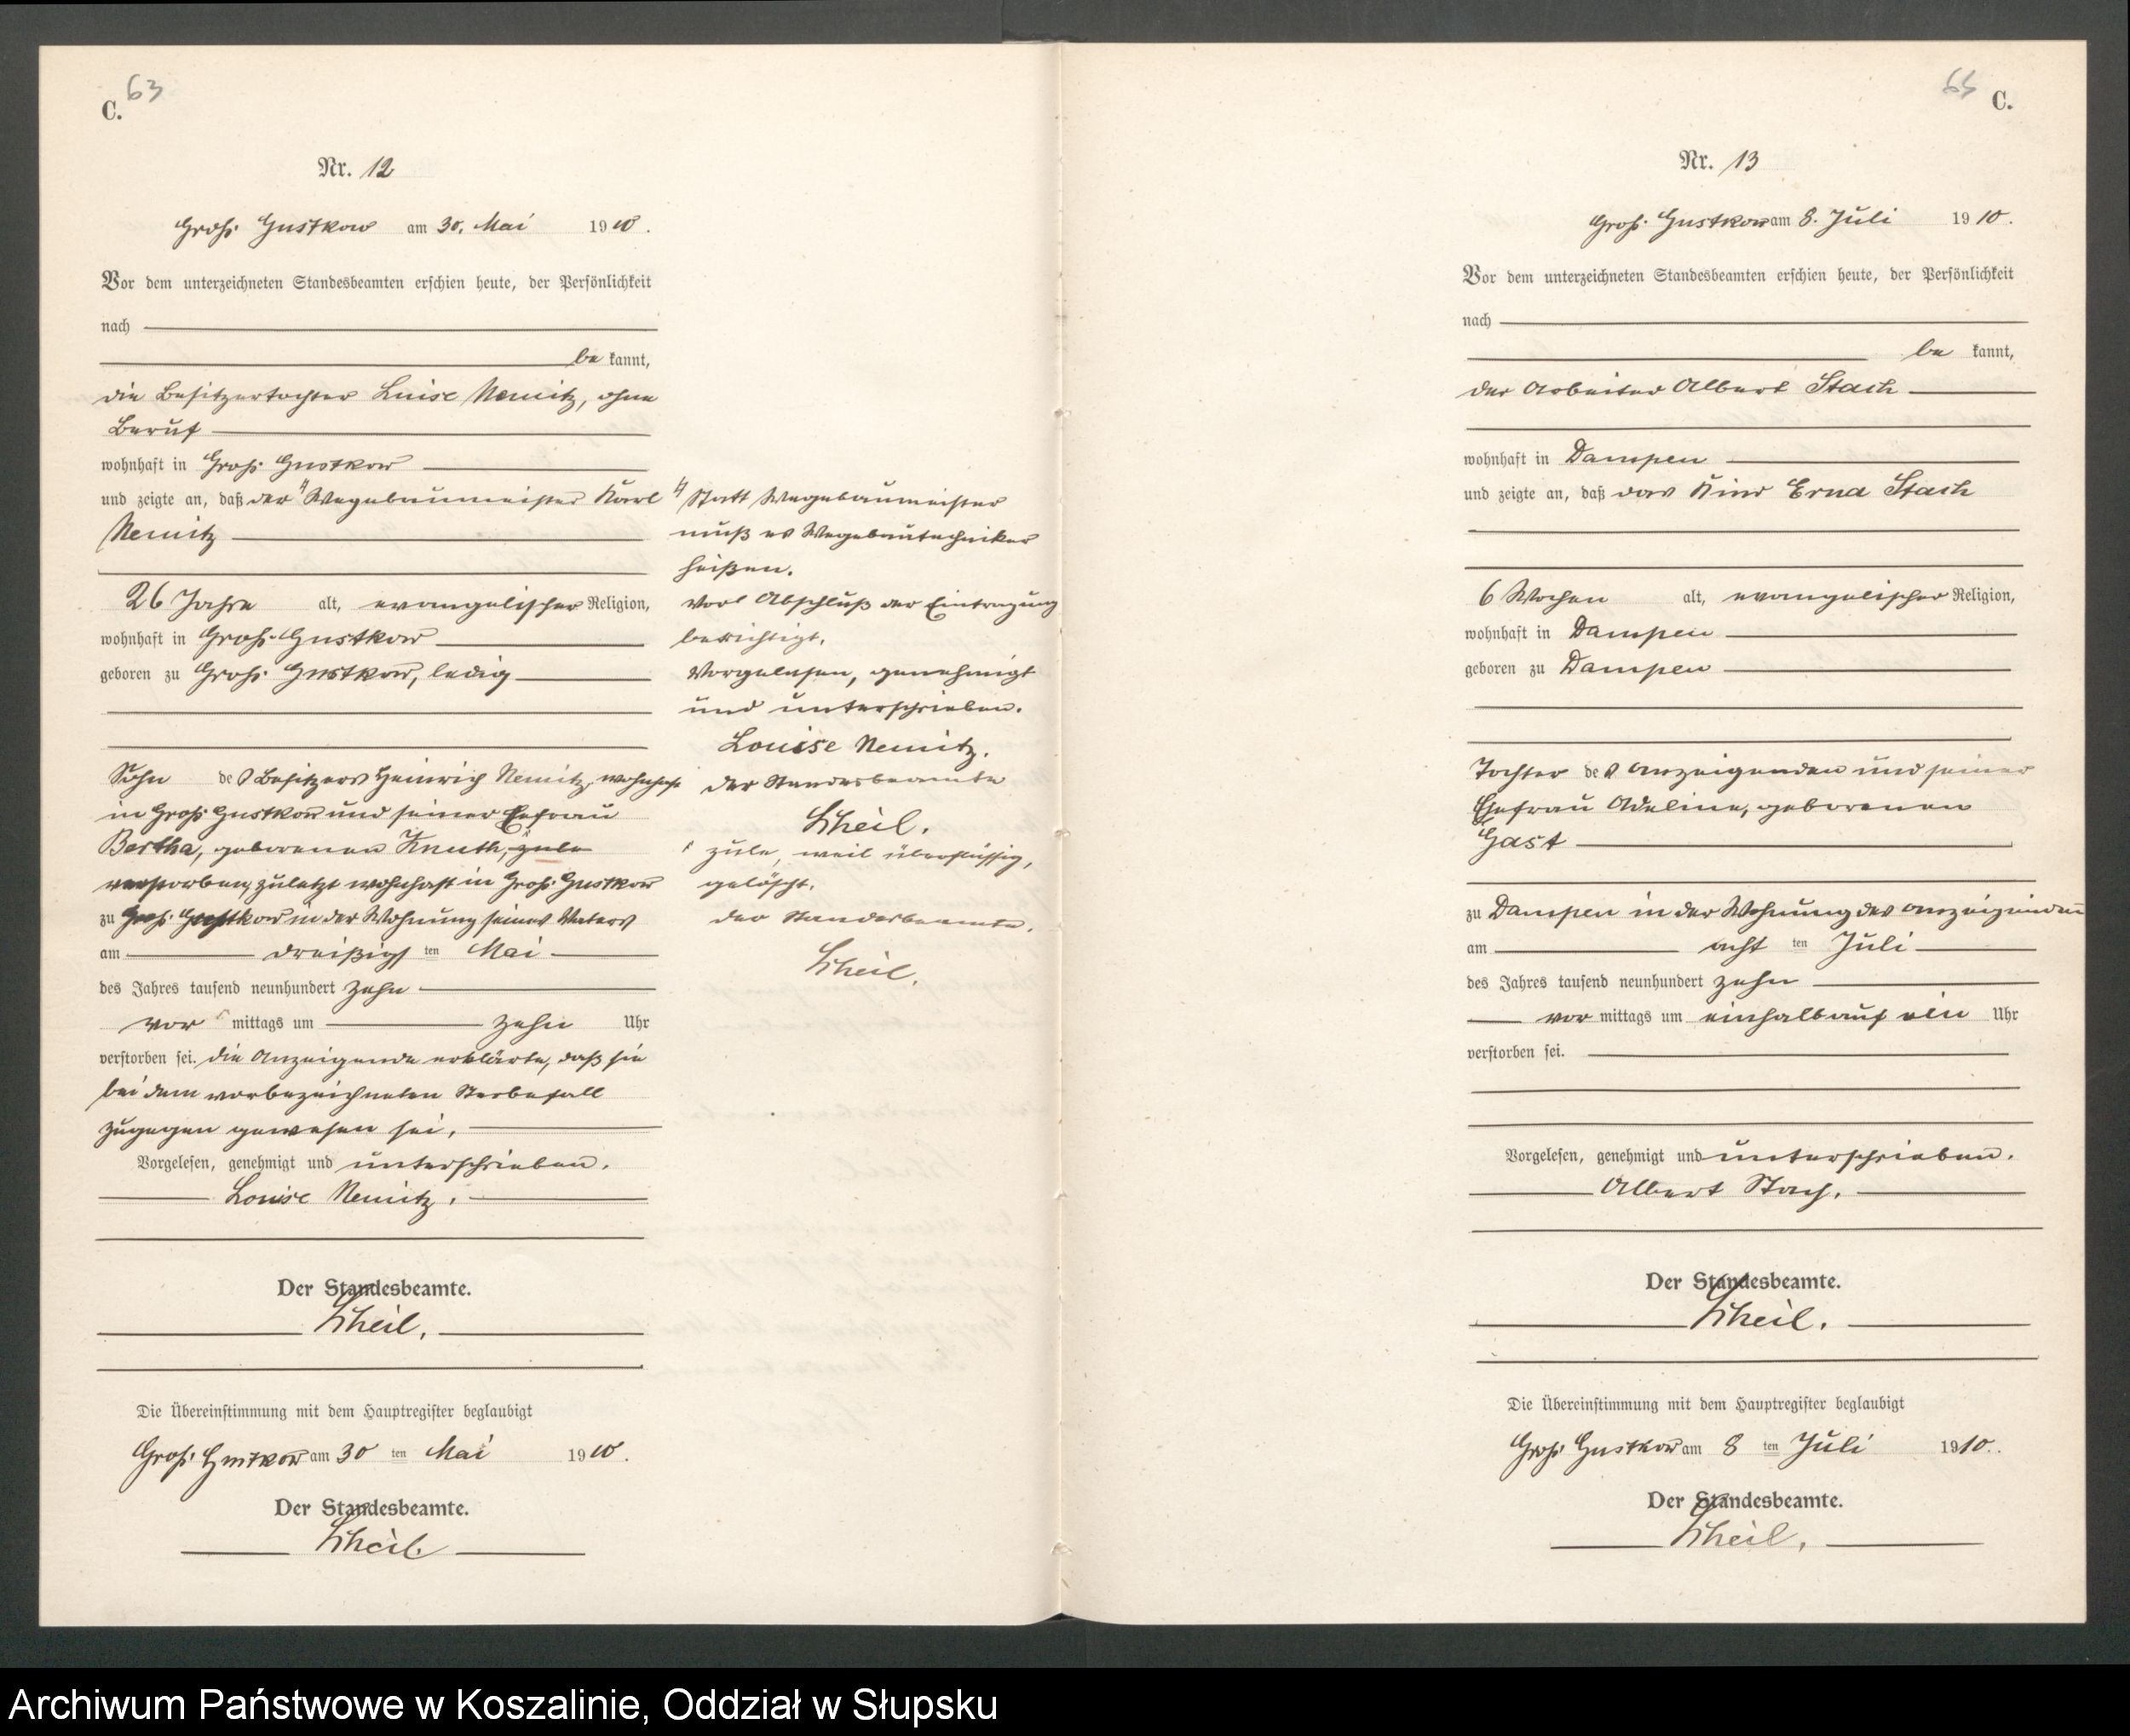 63
C.
Nr. 12
Groß Gustkow am 30. Mai 1910.
Vor dem unterzeichneten Standesbeamten erschien heute, der Persönlichkeit
nach
be kannt,
die Besitzertochter Luise Nemitz, ohne
Beruf
wohnhaft in Groß Gustkow
und zeigte an, daß der Wegebaumeister Karl
Nemitz
26 Jahre alt, evangelischer Religion,
wohnhaft in Groß-Gustkow
geboren zu Groß Gustkow, ledig
Sohn des Besitzers Heinrich Nemitz, wohnhaft
in Groß Gustkow und seiner Ehefrau
Bertha, geborenen Knuth, zule
verstorben, zuletzt wohnhaft in Groß Gustkow
zu Groß Gustkow in der Wohnung seines Vaters
am dreißigsten Mai
des Jahres tausend neunhundert zehn
vor mittags um zehn Uhr
verstorben sei. Die Anzeigende erklärte, daß sie
bei dem vorbezeichneten Sterbefall
zugegen gewesen sei.
Vorgelesen, genehmigt und unterschrieben.
Louise Nemitz.
Der Standesbeamte.
Scheil.
Die Übereinstimmung mit dem Hauptregister beglaubigt
Groß Gustkow am 30 ten Mai 1910.
Der Standesbeamte.
Scheil.
Statt Wegebaumeister
muß es Wegebautechniker
heißen.
Vor Abschluß der Eintragung
berichtigt.
Vorgelesen, genehmigt
und unterschrieben.
Louise Nemitz.
Der Standesbeamte
Scheil.
zule, weil überflüssig,
gelöscht.
Der Standesbeamte.
Scheil.
65
C.
Nr. 13
Groß Gustkow am 8. Juli 1910.
Vor dem unterzeichneten Standesbeamten erschien heute, der Persönlichkeit
nach
be kannt,
der Arbeiter Albert Stach
wohnhaft in Dampen
und zeigte an, daß das Kind Erna Stach
6 Wochen alt, evangelischer Religion,
wohnhaft in Dampen
geboren zu Dampen
Tochter des Anzeigenden und seiner
Ehefrau Adeline, geborenen
Gast
zu Dampen in der Wohnung des Anzeigenden
am acht ten Juli
des Jahres tausend neunhundert zehn
vor mittags um einhalb auf ein Uhr
verstorben sei.
Vorgelesen, genehmigt und unterschrieben.
Albert Stach.
Der Standesbeamte.
Scheil.
Die Übereinstimmung mit dem Hauptregister beglaubigt
Groß Gustkow am 8 ten Juli 1910.
Der Standesbeamte.
Scheil.
Archiwum Państwowe w Koszalinie, Oddział w Słupsku